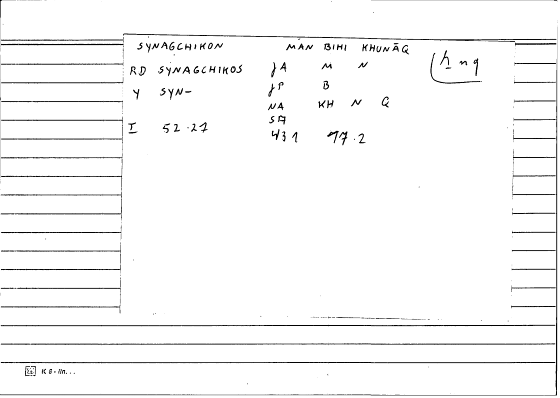 SYNAGCHIKON MĀN BIHI KHUNĀQ
ẖnq
RD SYNAGCHIKOS JA M N
Y SYN- JP B
NA KH N Q
SA
I 52.27 431 77.2
K 8 - lin...